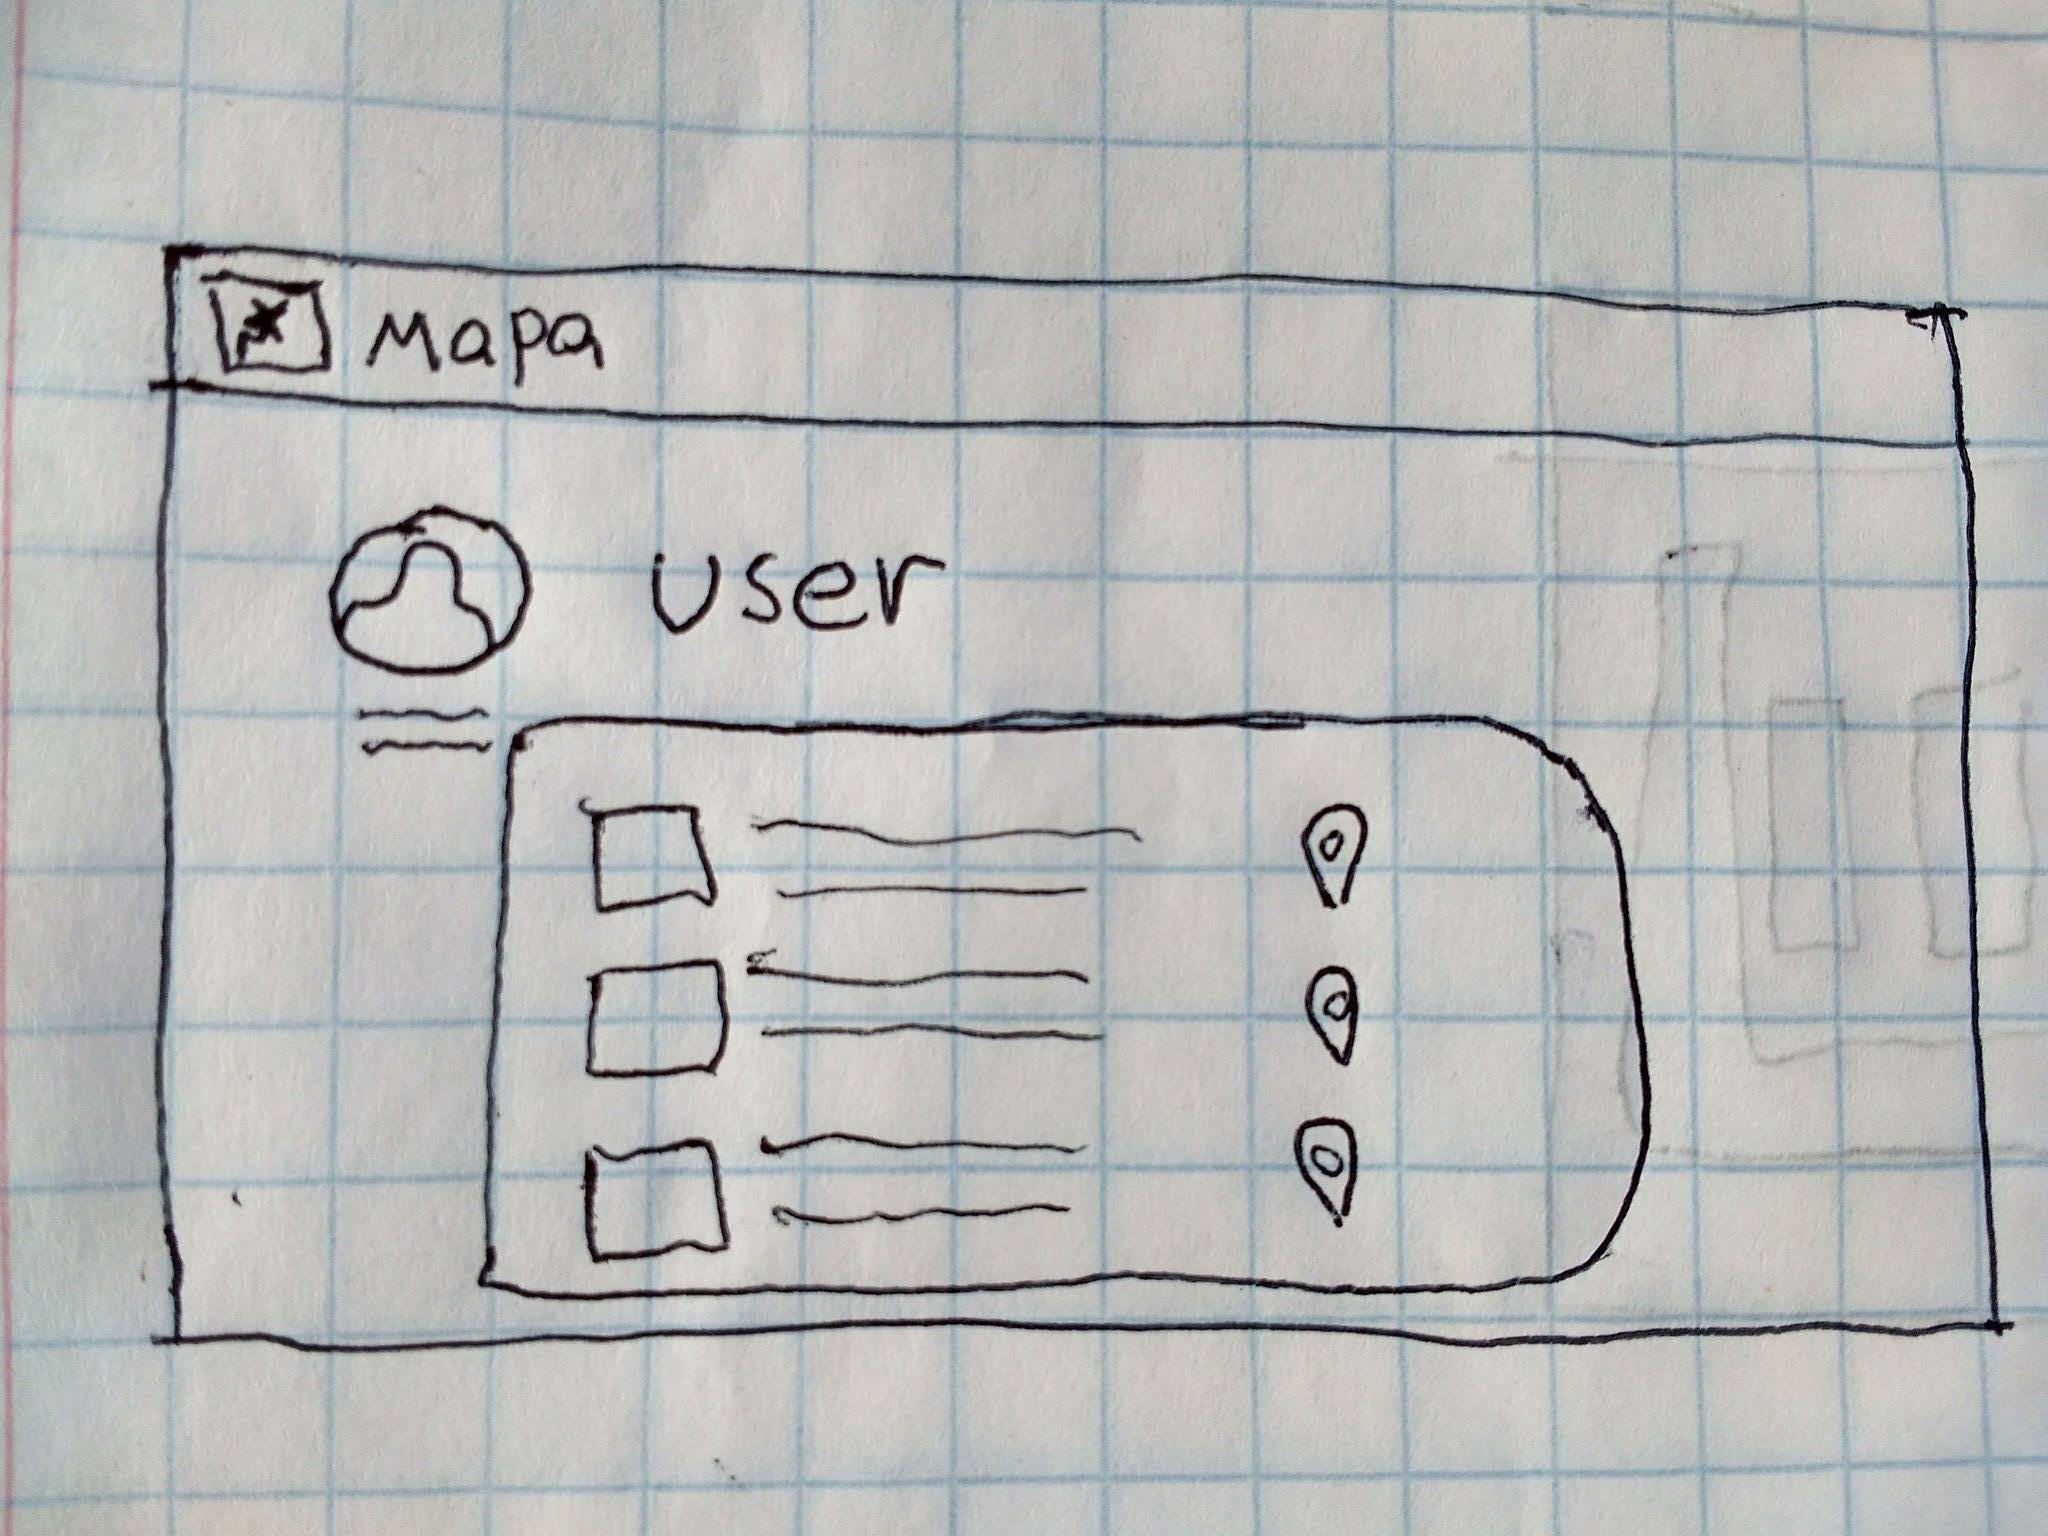 Mapa
user